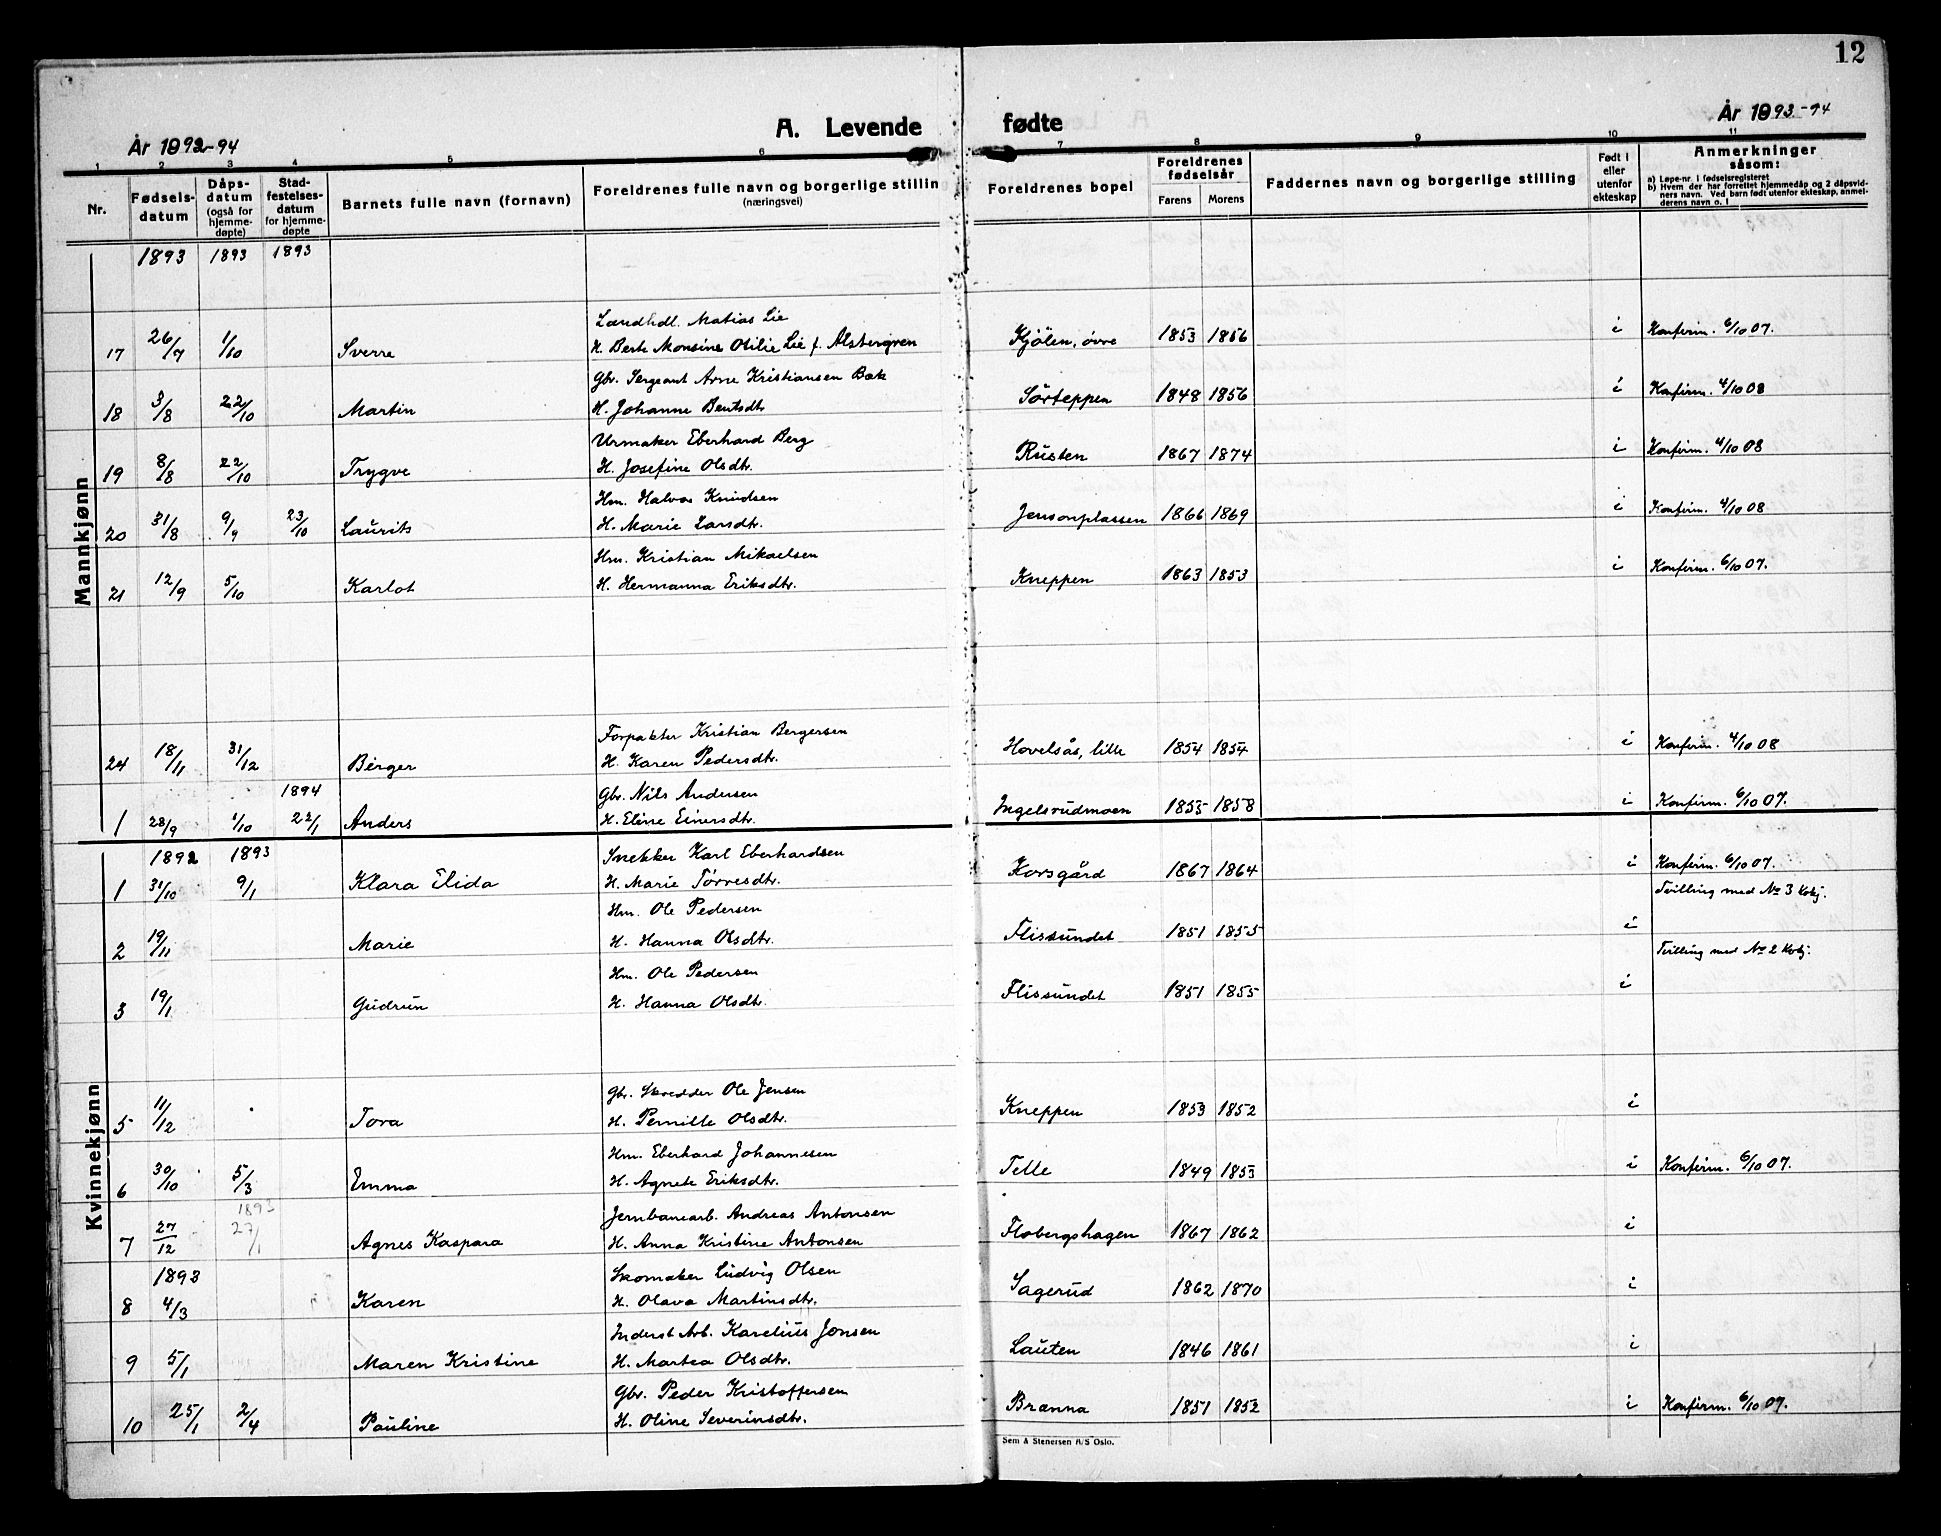 12
A. Levende fødte
År 1892-94
År 1893-94
1 2 3 4 5 6 7 8 9 10 11
Nr. Fødsels-datum Dåps-datum (også for hjemme-døpte) Stad-festelses-datum for hjemme-døpte Barnets fulle navn (fornavn) Foreldrenes fulle navn og borgerlige stillin (næringsvei) Foreldrenes bopel Foreldrenes fødselsår Farens Morens Faddernes navn og borgerlige stilling Født i eller utenfor ekteskap Anmerkninger såsom:
a) Løpe-nr. i fødselsregisteret
b) Hvem der har forrettet hjemmedåp og 2 dåpsvid-
ners navn. Ved barn født utenfor ekteskap, anmel-
derens navn o. l
Mannkjønn
1893 1893 1893
Landhdl. Matias Lie
17 26/7 1/10 Sverre H. Berte Monsine Otilie Lie f. Alstergren Kjölen, övre 1853 1856 i Konfirm. 6/10 07.
Gbr. Sergeant Arne Kristiansen Bak
18 3/8 22/10 Martin H. Johanne Bentsdtr Sörteppen 1848 1856 i Konfirm. 4/10 08
Urmaker Eberhard Berg
19 8/8 22/10 Trygve H. Josefine Olsdtr. Rusten 1867 1874 i Konfirm. 4/10 08
Hm. Halvor Knudsen
20 31/8 9/9 23/10 Laurits H. Marie Larsdtr. Jensonplassen 1866 1869 i Konfirm. 4/10 08
Hm. Kristian Mikaelsen
21 12/9 5/10 Karlot H. Hermanna Eriksdtr. Kneppen 1863 1853 i Konfirm. 6/10 07.
Forpakter Kristian Bergersen
24 18/11 31/12 Berger H. Karen Pedersdtr. Hovelsås, lille 1854 1854 i Konfirm. 4/10 08
1894 Gbr. Nils Andersen
1 28/9 1/10 22/1 Anders H. Eline Einersdtr. Ingelsrudmoen 1855 1858 i Konfirm. 6/10 07.
Kvinnekjønn
1892 1893 Snekker Karl Eberhardsen
1 31/10 9/1 Klara Elida H. Marie Törresdtr. Korsgård 1867 1864 i Konfirm. 6/10 07.
Tvilling med No 3 Kvkj.
Hm. Ole Pedersen
2 19/11 Marie H. Hanna Olsdtr. Flissundet 1851 1855 i
Tvilling med No 2 Kvkj.
Hm. Ole Pedersen
3 19/1 Gudrun H. Hanna Olsdtr. Flissundet 1851 1855 i
Gbr. Skredder Ole Jensen
5 11/12 Tora H. Pernille Olsdtr. Kneppen 1853 1852 i
Hm. Eberhard Johannesen
6 30/10 5/3 Emma H. Agnete Eriksdtr. Telle 1849 1853 i Konfirm. 6/10 07.
1893 Jernbanearb. Andreas Antonsen
7 27/12 27/1 Agnes Kaspara H. Anna Kristine Antonsen Flobergshagen 1867 1862 i
1893 Skomaker Ludvig Olsen
8 4/3 Karen H. Olava Martinsdtr. Sagerud 1862 1870 i
Inderst Arb. Karelius Jonsen
9 5/1 Maren Kristine H. Martea Olsdtr. Lauten 1846 1861 i
Gbr. Peder Kristoffersen
10 25/1 2/4 Pauline H. Oline Severinsdtr. Brænna 1851 1852 i Konfirm. 6/10 07.
Sem & Stenersen A/S Oslo.